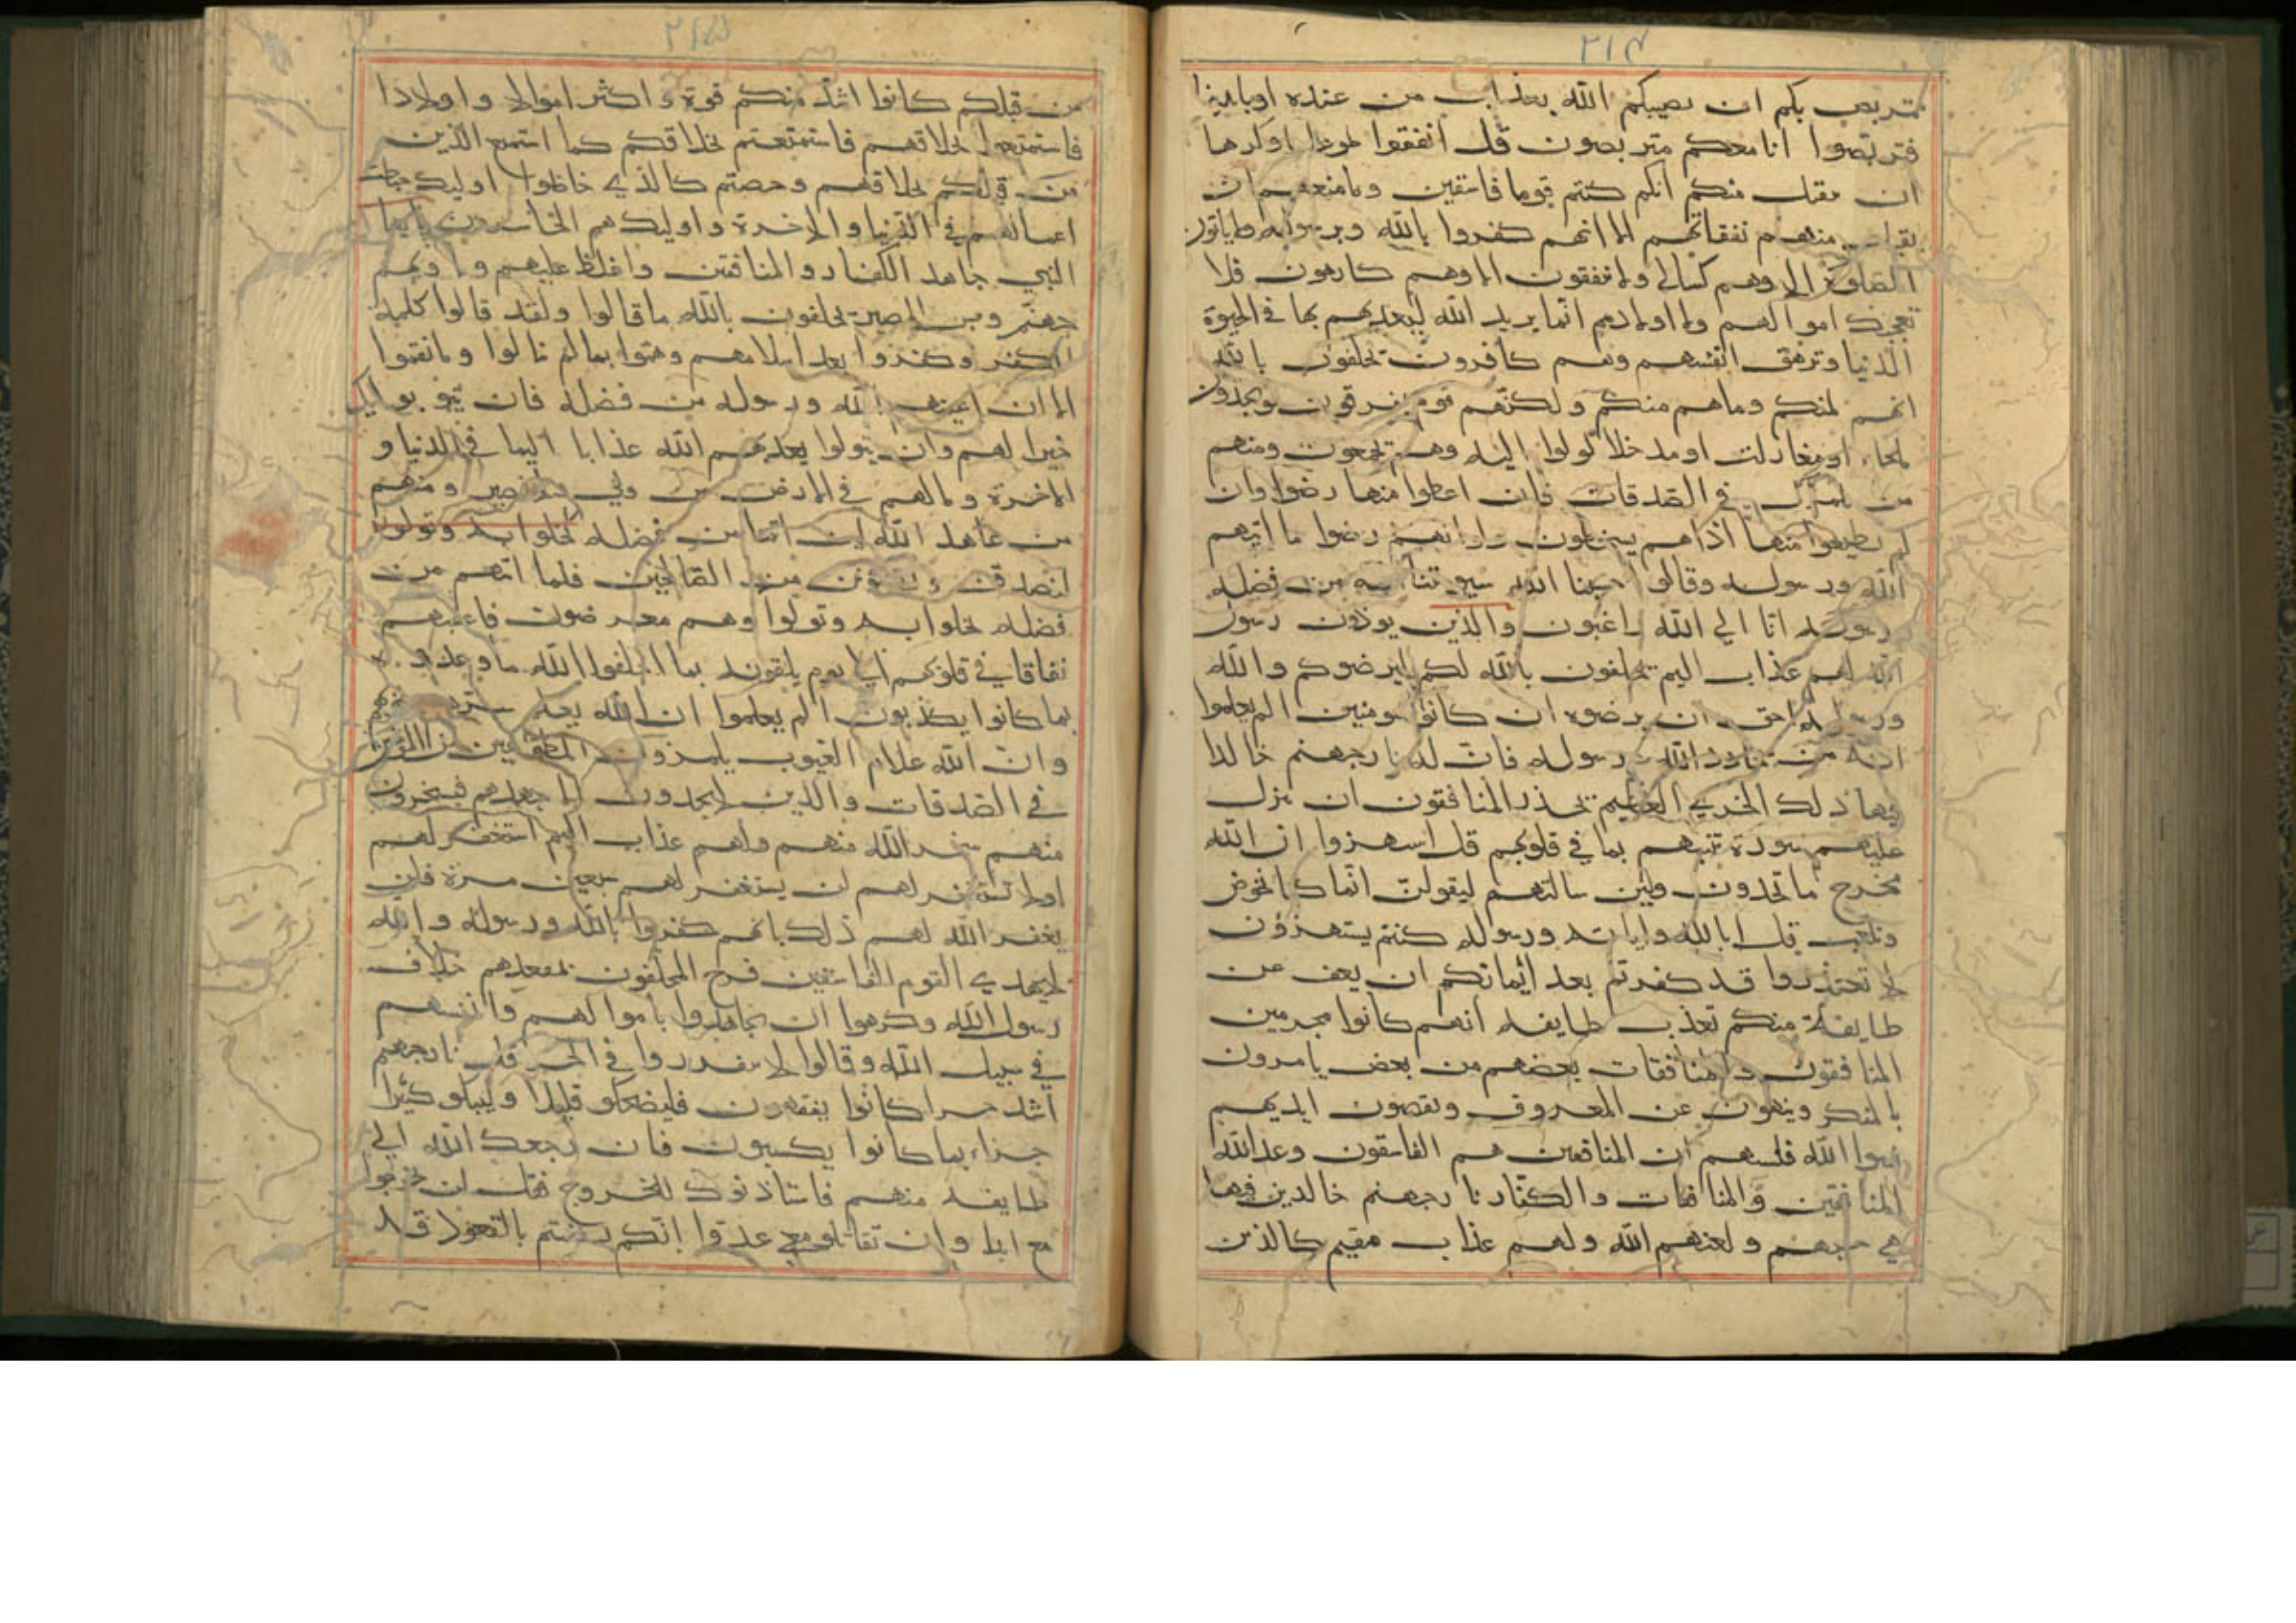 ٢١٤
نتربص بكم ان يصيبكم الله بعذاب من عنده او بايدينا
فتربصوا انا معكم متربصون قل انفقوا طوعا او كرها
ان يتقبل منكم انكم كنتم قوما فاسقين وما منعهم ان
تقبل منهم نفقاتهم الا انهم كفروا بالله وبرسوله ولا ياتون
الصلوة الا وهم كسالى ولا ينفقون الا وهم كارهون فلا
تعجبك اموالهم ولا اولادهم انما يريد الله ليعذبهم بها في الحيوة
الدنيا وتزهق انفسهم وهم كافرون يحلفون بالله
انهم لمنكم وما هم منكم ولكنهم قوم يفرقون لو يجدون
ملجاء او مغارات او مدخلا لولوا اليه وهم يجمحون ومنهم
من يلمزك في الصدقات فان اعطوا منها رضوا وان
لم يعطوا منها اذا هم يسخطون ولو انهم رضوا ما اتيهم
الله ورسوله وقالوا حسبنا الله سيوتينا الله من فضله
ورسوله انا الى الله راغبون والذين يوذون رسول
الله لهم عذاب اليم يحلفون بالله لكم ليرضوكم والله
ورسوله احق ان يرضوه ان كانوا مومنين الم يعلموا
انه من يحادد الله ورسوله فان له نار جهنم خالدا
فيها ذلك الخزي العظيم يحذر المنافقون ان تنزل
عليهم سورة تنبئهم بما في قلوبهم قل استهزوا ان الله
مخرج ما تحذرون ولين سالتهم ليقولن انما كنا نخوض
ونلعب قل ابالله واياته ورسوله كنتم يستهزؤن
لا تعتذروا قد كفرتم بعد ايمانكم ان يعف عن
طايفة منكم نعذب طايفه انهم كانوا مجرمين
المنافقون والمنافقات بعضهم من بعض يامرون
بالمنكر وينهون عن المعروف ويقبضون ايديهم
نسوا الله فنسيهم ان المنافقين هم الفاسقون وعد الله
المنافقين والمنافقات والكفار نار جهنم خالدين فيها
هي حسبهم ولعنهم الله ولهم عذاب مقيم كالذين
٢١٥
من قبلكم كانوا اشد منكم قوة و اكثر اموالا و اولادا
فاستمتعوا بخلاقهم فاستمتعتم بخلاقكم كما استمتع الذين
من قبلكم بخلاقهم وخضتم كالذي خاضوا اوليك حبطت
اعمالهم في الدنيا والاخرة واوليك هم الخاسرون يايها
النبي جاهد الكفار والمنافقين واغلظ عليهم وماويهم
جهنم وبئس المصير يحلفون بالله ما قالوا ولقد قالوا كلمة
الكفر وكفروا بعد اسلامهم وهموا بما لم ينالوا وما نقموا
الا ان اغنيهم الله ورسوله من فضله فان يتوبوا يك
خيرا لهم وان يتولوا يعذبهم الله عذابا اليما في الدنيا و
الاخرة وما لهم في الارض من ولي ولا نصير ومنهم
من عاهد الله لئن اتينا من فضله بخلوا به وتولوا
لنصدقن ولنكونن من الصالحين فلما اتيهم من
فضله بخلوا به وتولوا وهم معرضون فاعقبهم
نفاقا في قلوبهم الى يوم يلقونه بما اخلفوا الله ما وعدوه
بما كانوا يكذبون الم يعلموا ان الله يعلم سرهم ونجويهم
وان الله علام الغيوب يلمزون المطوعين من المومنين
في الصدقات والذين لا يجدون الا جهدهم فيسخرون
منهم سخر الله منهم ولهم عذاب اليم استغفر لهم
اولا تستغفر لهم ان يستغفر لهم سبعين مرة فلن
يغفر الله لهم ذلك بانهم كفروا بالله ورسوله والله
لا يهدي القوم الفاسقين فرح المخلفون بمقعدهم خلاف
رسول الله وكرهوا ان يجاهدوا باموالهم وانفسهم
في سبيل الله وقالوا لا تنفروا في الحر قل نار جهنم
اشد حرا كانوا يفقهون فليضحكوا قليلا وليبكوا كثيرا
جزاء بما كانوا يكسبون فان رجعك الله الى
طايفه منهم فاستاذنوك للخروج فقل لن تخرجوا
مع ابدا ولن تقاتلوا معي عدوا انكم رضيتم بالقعود